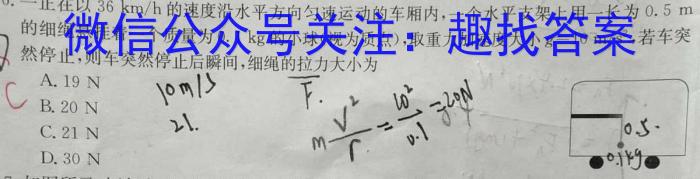 6. 一正在以 36 km/h 的速度沿水平方向匀速运动的车厢内,一个水平支架上用一长为 0.5 m
的细绳 质量为 kg 小球 视为质点),取重力 若车突
微信公众号关注:趣找答案
然停止,则车突然停止后瞬间,细绳的拉力大小为
A. 19 N
B. 20 N
C. 21 N
D. 30 N
C
10m/s
21.
F.
m V²/r = 10²/0.1 = 20N
0.5
0.1kg